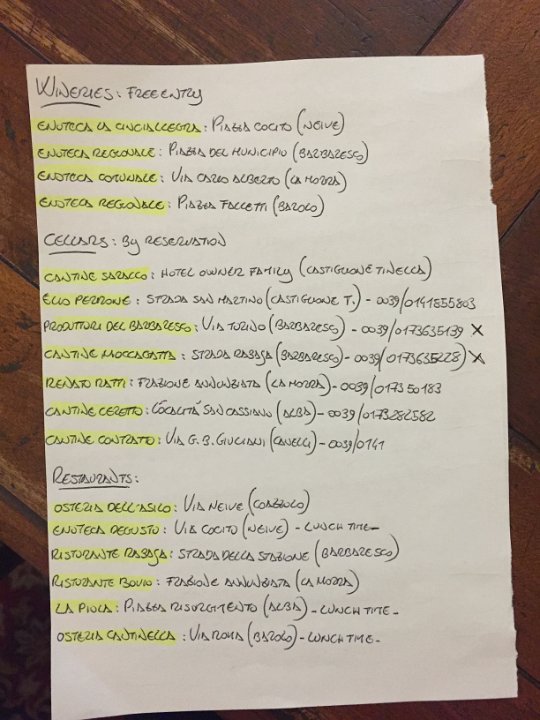 WINERIES: FREE ENTRY
ENOTECA LA CINCIALLEGRA: PIAZZA COCITO (NEIVE)
ENOTECA REGIONALE: PIAZZA DEL MUNICIPIO (BARBARESCO)
ENOTECA COMUNALE: VIA CARLO ALBERTO (LA MORRA)
ENOTECA REGIONALE: PIAZZA FALLETTI (BAROLO)
CELLARS: BY RESERVATION
CANTINE SARACCO: HOTEL OWNER FAMILY (CASTIGLIONE TINELLA)
ELIO PERRONE: STRADA SAN MARTINO (CASTIGLIONE T.) - 0039/0141855803
PRODUTTORI DEL BARBARESCO: VIA TORINO (BARBARESCO) - 0039/0173635139 X
CANTINE MOCCAGATTA: STRADA RABAJA (BARBARESCO) - 0039/0173635228) X
RENATO RATTI: FRAZIONE ANNUNZIATA (LA MORRA) - 0039/017350183
CANTINE CERETTO: LOCALITÀ SAN CASSIANO (ALBA) - 0039/0173282582
CANTINE CONTRATTO: VIA G. B. GIULIANI (CANELLI) - 0039/0141
RESTAURANTS:
OSTERIA DELL'ASILO: VIA NEIVE (COAZZOLO)
ENOTECA DEGUSTO: VIA COCITO (NEIVE) - LUNCH TIME -
RISTORANTE RABAJA: STRADA DELLA STAZIONE (BARBARESCO)
RISTORANTE BOVIO: FRAZIONE ANNUNZIATA (LA MORRA)
LA PIOLA: PIAZZA RISORGIMENTO (ALBA) - LUNCH TIME -
OSTERIA CANTINELLA: VIA ROMA (BAROLO) - LUNCH TIME -